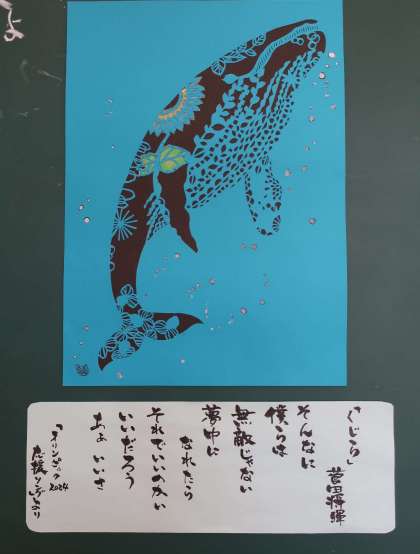 「くじら」
菅田将暉
そんなに
僕らは
無敵じゃない
夢中に
なれたら
それでいいのかい
いいだろう
あぁ いいさ
「オリンピック2024
応援ソングより
よ